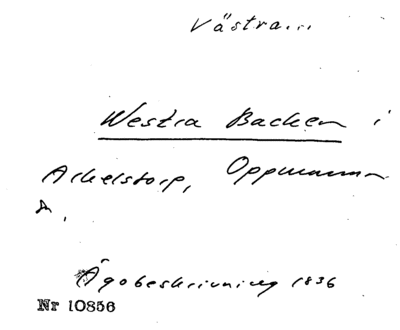 Västra...
Westra Backen i
Arkelstorp, Oppmanna
sn.
Ägobeskrivning 1836
Nr 10856